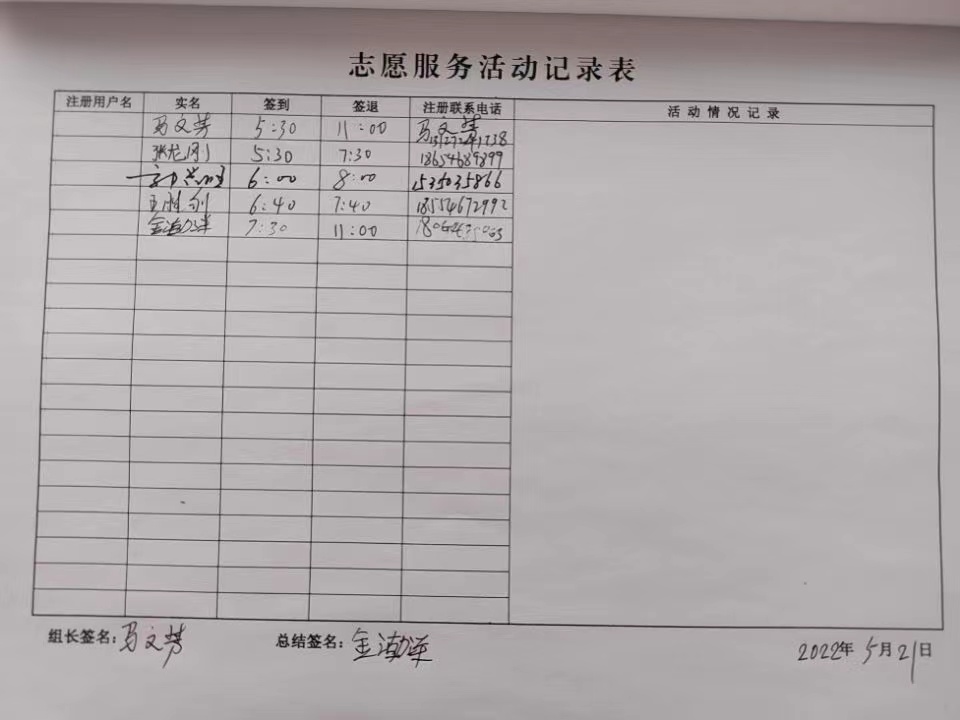 志愿服务活动记录表
注册用户名 实名 签到 签退 注册联系电话 活动情况记录
马文芳 5:30 11:00 马文芳
张龙刚 5:30 7:30 18654689899
6:00 8:00
6:40 7:40 18554672992
7:30 11:00
组长签名:马文芳 总结签名: 2022年5月21日